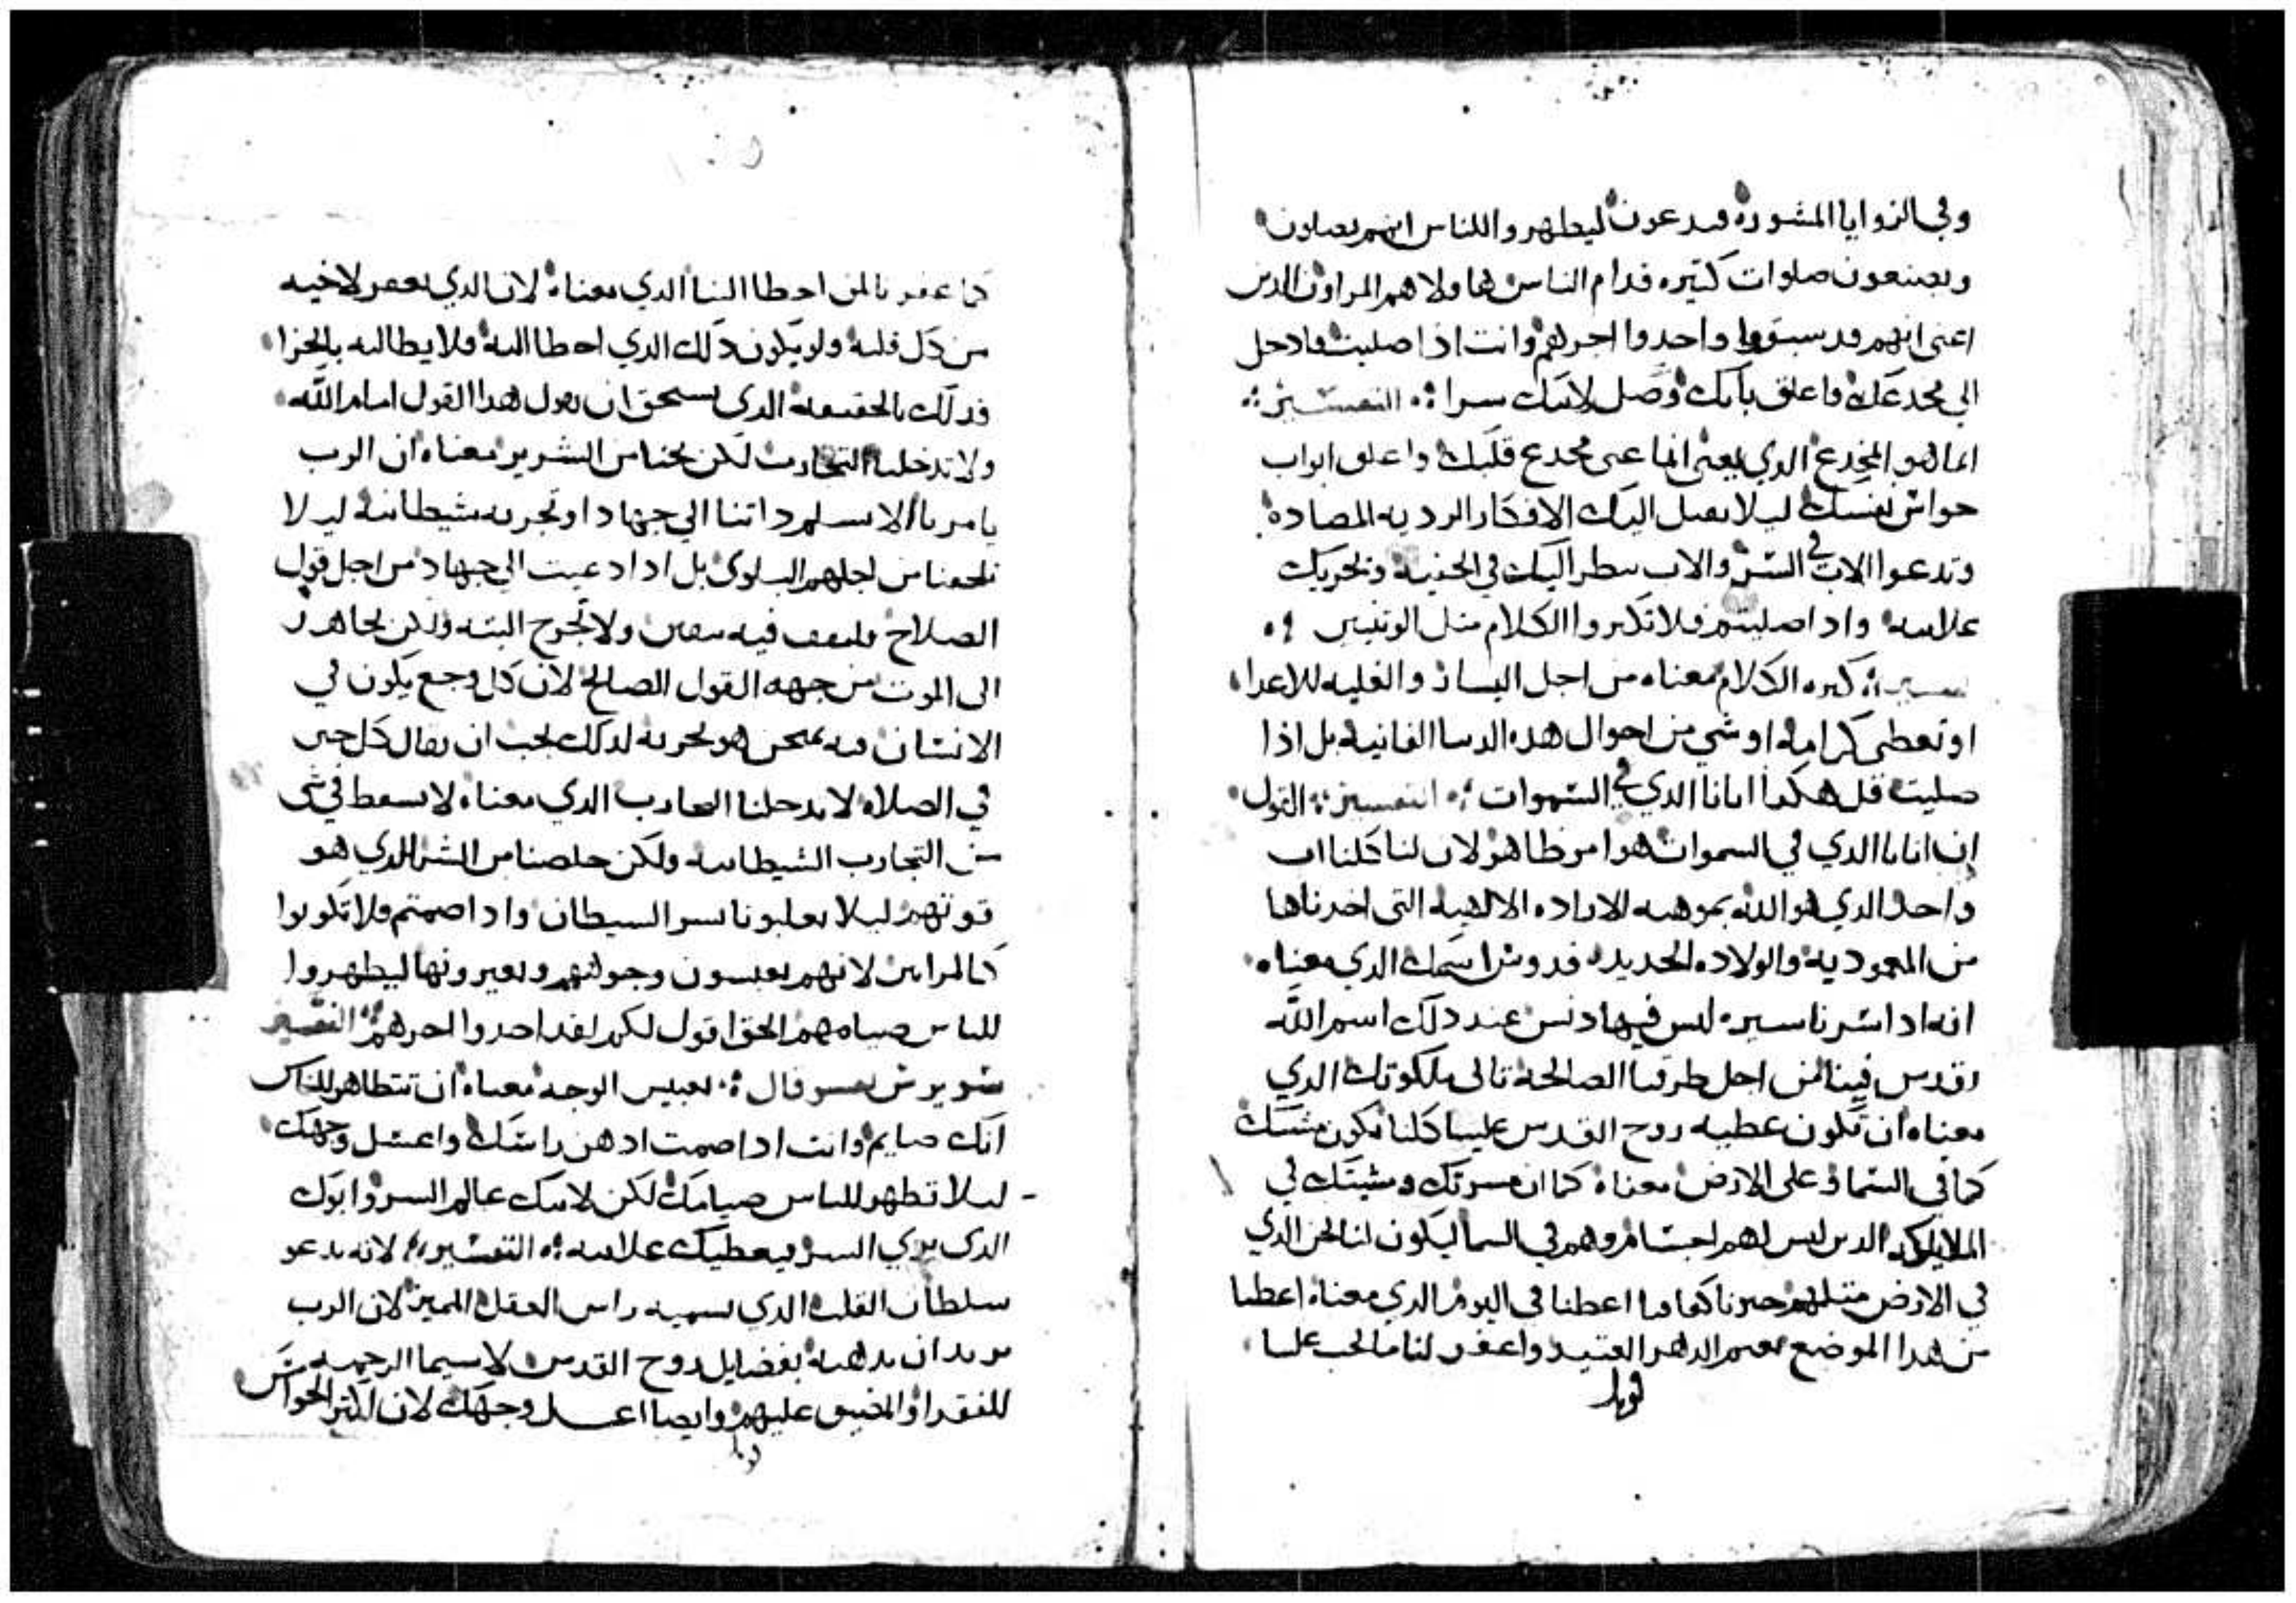 وفي الزوايا المشوره فيدعون ليطهروا للناس انهم يصلون
ويصنعون صلوات كتيره قدام الناس هاولا هم المراون الدين
اعني انهم قد سبقوا واخدوا اجرهم وانت اذا صليت فادخل
الي مخدعك واغلق بابك وصل لابيك سرا التفسير
انما هو المخدع الدي يعني انما عني مخدع قلبك واغلق ابواب
حواس نفسك ليلا يصل اليك الافكار الرديه المضاده
وتدعوا الاب في السر والاب ينطر اليك في الخفيه ويجزيك
علانيه واد اصليتم فلا تكتروا الكلام متل الوتنيين
تفسير كتره الكلام معناه من اجل اليسار والغلبه للاعدا
او تعطى كرامه او شي من احوال هده الدنيا الفانيه بل اذا
صليت قل هكدا ابانا الدي في السموات التفسير القول
ان ابانا الدي في السموات هو امر ظاهر لان لنا كلنا اب
واحد الدي هو الله بموهبه الاراده الالهيه التي اخدناها
من المعموديه والولاده الجديده قدوس اسمك الدي معناه
انه اد اسرنا سيره ليس فيها دنس عند دلك اسم الله
يقدس فينا من اجل طرقنا الصالحه تاتي ملكوتك الدي
معناه ان تكون عطيه روح القدس علينا كلنا تكون مشيتك
كما في السما وعلى الارض معناه كما ان مسرتك ومشيتك في
الملايكه الدين ليس لهم اجسام وهم في السما ليكون لنا نحن الدي
في الارض متلهم خبزنا كفافنا اعطنا في اليوم الدي معناه اعطنا
من هدا الموضع نعيم الدهر العتيد واغفر لنا ما يجب علينا
قوبل
كما غفرنا لمن اخطا الينا الدي معناه لان الدي يغفر لاخيه
من كل قلبه ولو يكون دلك الدي اخطا اليه فلا يطالبه بالجزا
فدلك بالحقيقه الدي يستحق ان يقول هدا القول امام الله
ولا تدخلنا التجارب لكن نجنا من الشرير معناه ان الرب
يامرنا الا نسلم دواتنا الي جهاد او تجربه شيطانيه ليلا
تلحقنا من اجلهم البلوى بل اد ادعيت الي جهاد من اجل قول
الصلاح فلتقف فيه بيقين ولا تجزع البته ولكن تجاهد
الى الموت من جهه القول الصالح لان كل وجع يكون في
الانسان فيه يمتحن هو تجربه لدلك يجب ان يقال كل حين
في الصلاه لا تدخلنا التجارب الدي معناه لا نسقط في شي
من التجارب الشيطانيه ولكن خلصنا من الشر الدي هو
قوتهم ليلا يغلبونا بسر السيطان واد اصمتم فلا تكونوا
كالمراين لانهم يعبسون وجوههم ويغيرونها ليطهروا
للناس صيامهم الحق اقول لكم لقد اخدوا اجرهم التفسير
سويرس يفسر وقال تعبيس الوجه معناه ان تتظاهر للناس
انك صايم وانت اد اصمت ادهن راسك واغسل وجهك
ليلا تطهر للناس صيامك لكن لابيك عالم السر وابوك
الدي يري السر فيعطيك علانيه التفسير لانه يدعو
سلطان القلب الدي يسميه راس العقل المميز لان الرب
يريد ان يدهنه بفضايل روح القدس لاسيما الرحمه
للفقرا والمضيق عليهم وايضا اغسل وجهك لان اكتر الحواس